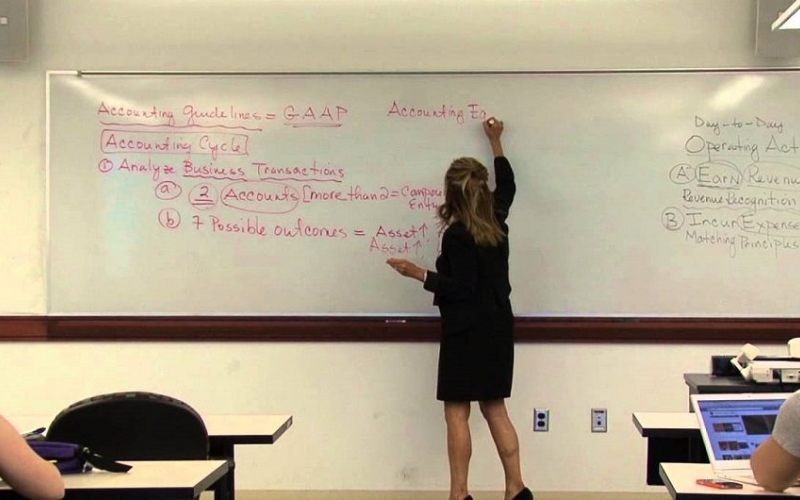 Accounting guidelines = GAAP
Accounting Eq
Accounting Cycle
① Analyze Business Transactions
ⓐ 2 Accounts [more than 2 = Compou
Entry
ⓑ 7 Possible outcomes = Asset↑
Asset↑
Day-to-Day
Operating Act
Ⓐ Earn Revenu
Revenue Recognition
Ⓑ Incur Expense
Matching Principles